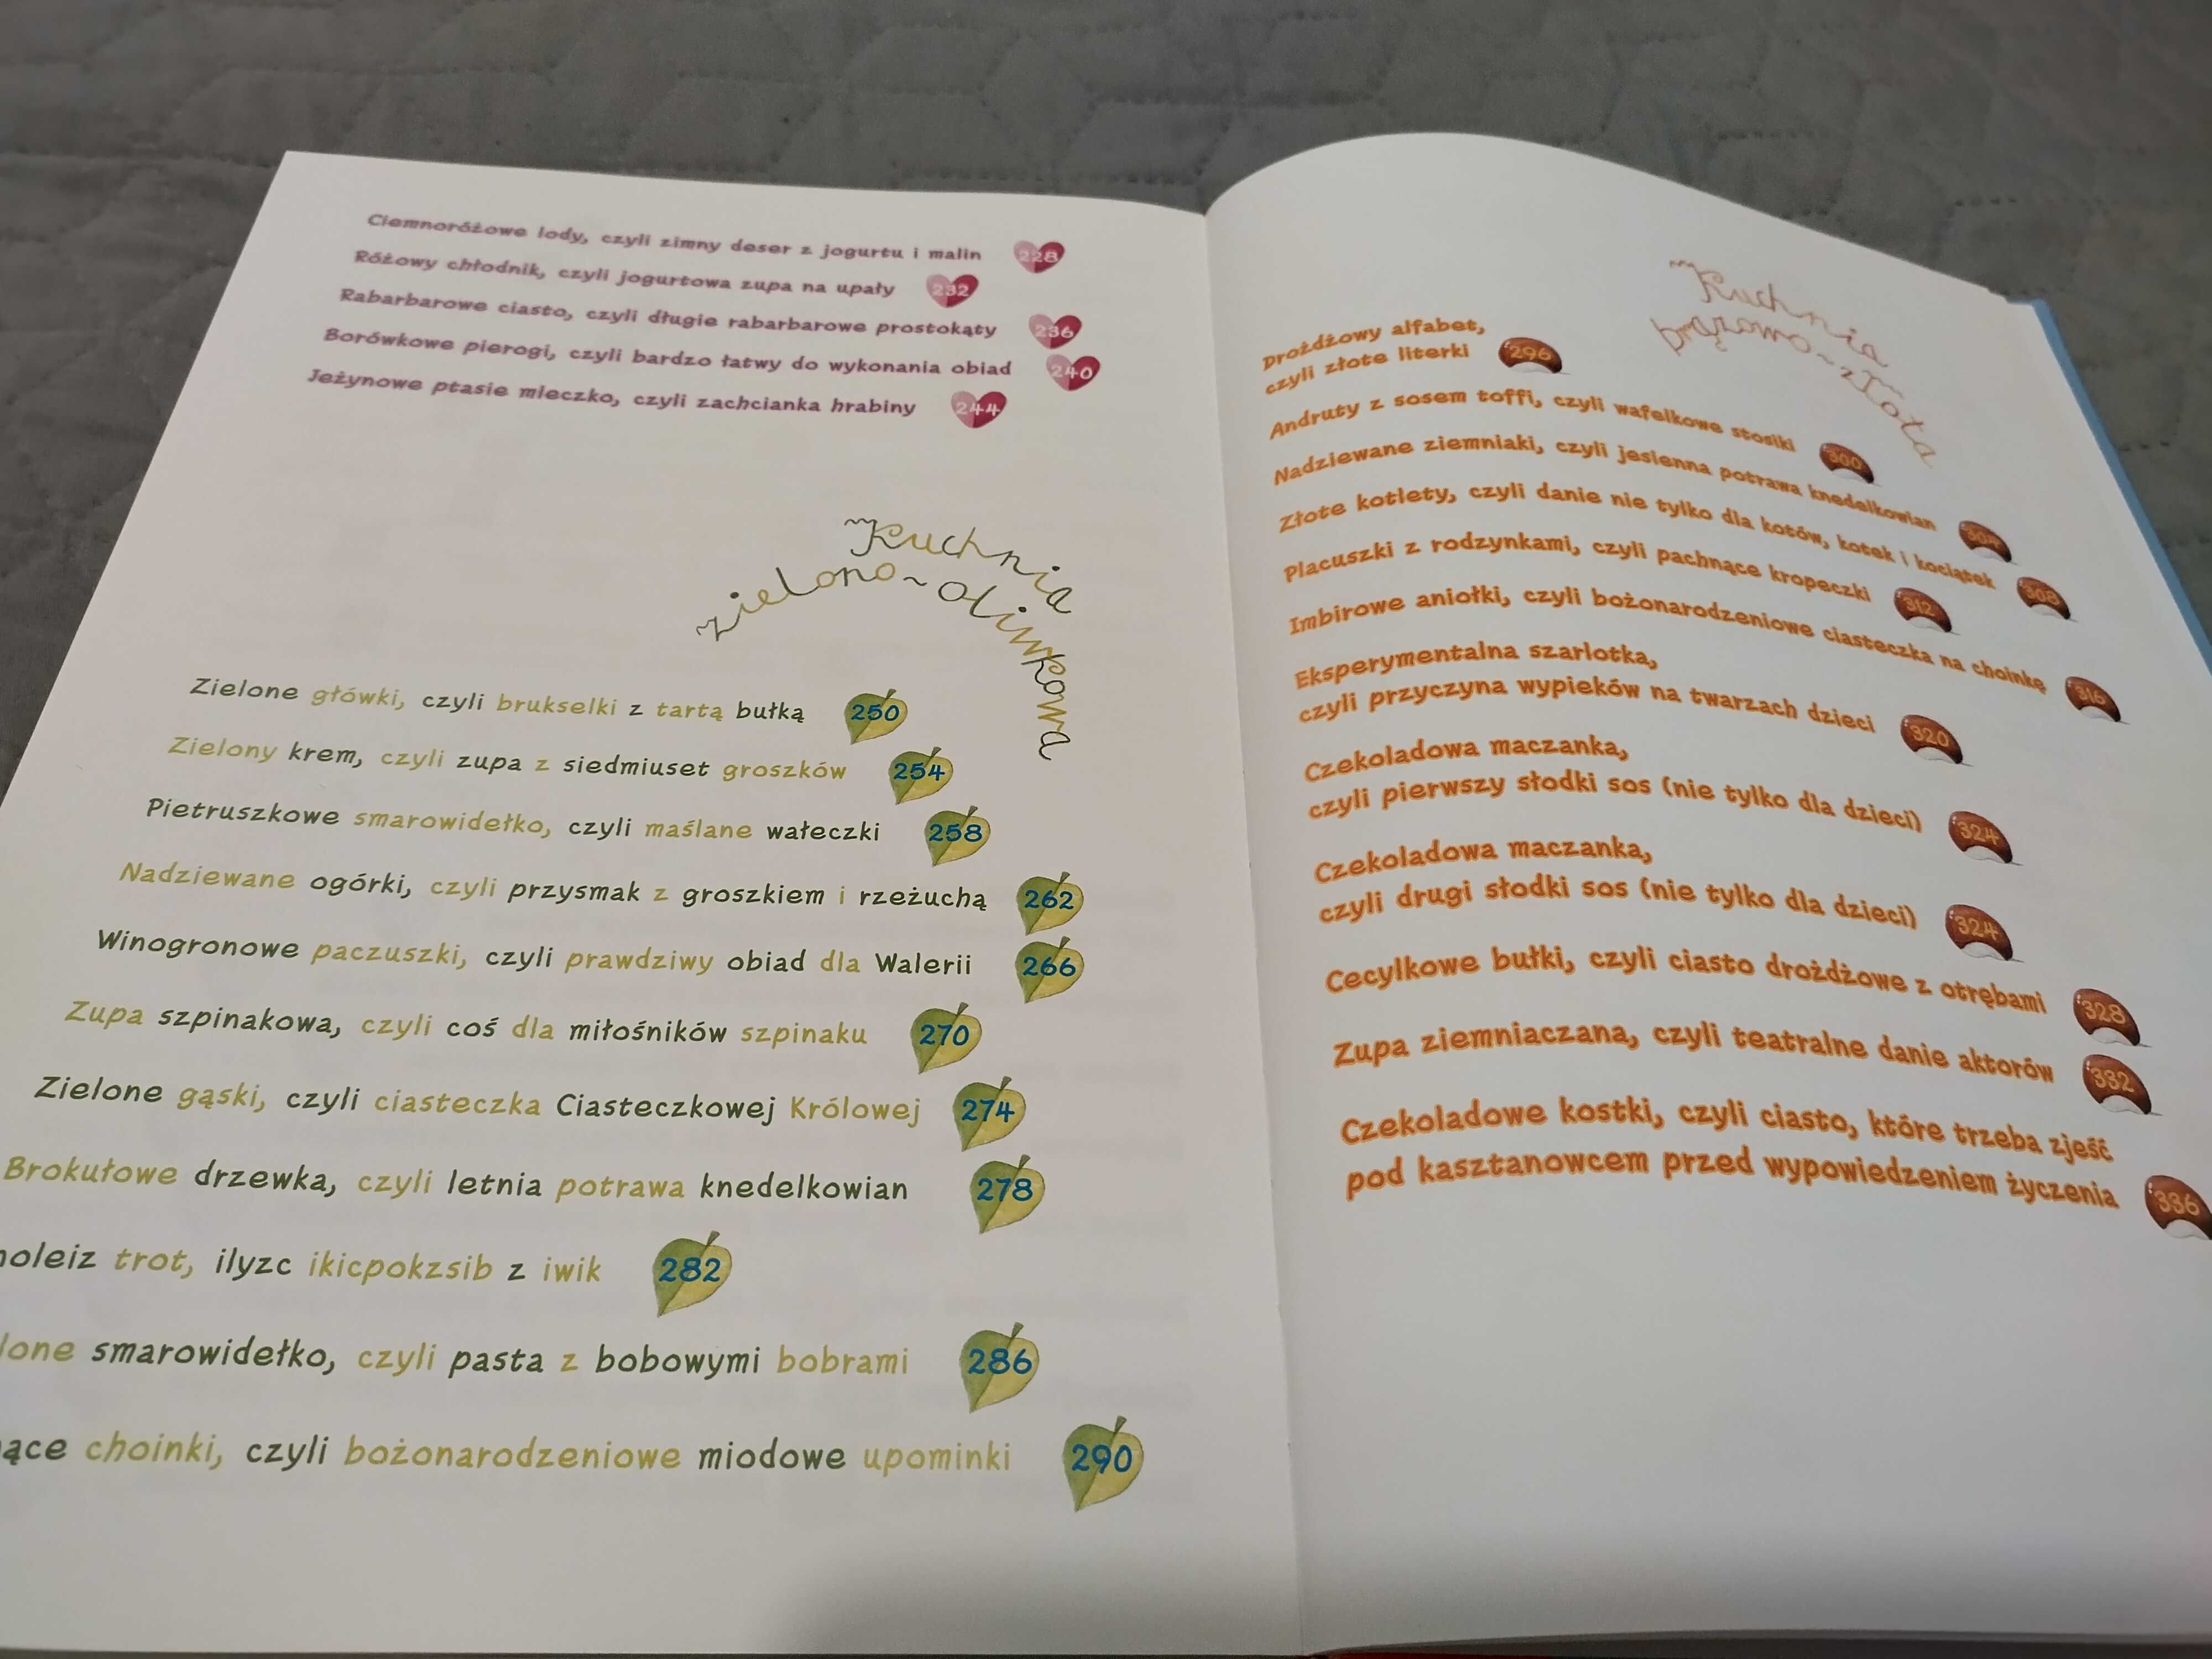 Ciemnoróżowe lody, czyli zimny deser z jogurtu i malin 228
Różowy chłodnik, czyli jogurtowa zupa na upały 232
Rabarbarowe ciasto, czyli długie rabarbarowe prostokąty 236
Borówkowe pierogi, czyli bardzo łatwy do wykonania obiad 240
Jeżynowe ptasie mleczko, czyli zachcianka hrabiny 244
Kuchnia
zielono-oliwkowa
Zielone główki, czyli brukselki z tartą bułką 250
Zielony krem, czyli zupa z siedmiuset groszków 254
Pietruszkowe smarowidełko, czyli maślane wałeczki 258
Nadziewane ogórki, czyli przysmak z groszkiem i rzeżuchą 262
Winogronowe paczuszki, czyli prawdziwy obiad dla Walerii 266
Zupa szpinakowa, czyli coś dla miłośników szpinaku 270
Zielone gąski, czyli ciasteczka Ciasteczkowej Królowej 274
Brokułowe drzewka, czyli letnia potrawa knedelkowian 278
noleiz trot, ilyzc ikicpokzsib z iwik 282
lone smarowidełko, czyli pasta z bobowymi bobrami 286
ące choinki, czyli bożonarodzeniowe miodowe upominki 290
Kuchnia
brązowo-złota
Drożdżowy alfabet,
czyli złote literki 296
Andruty z sosem toffi, czyli wafelkowe stosiki 300
Nadziewane ziemniaki, czyli jesienna potrawa knedelkowian 304
Złote kotlety, czyli danie nie tylko dla kotów, kotek i kociątek 308
Placuszki z rodzynkami, czyli pachnące kropeczki 312
Imbirowe aniołki, czyli bożonarodzeniowe ciasteczka na choinkę 316
Eksperymentalna szarlotka,
czyli przyczyna wypieków na twarzach dzieci 320
Czekoladowa maczanka,
czyli pierwszy słodki sos (nie tylko dla dzieci) 324
Czekoladowa maczanka,
czyli drugi słodki sos (nie tylko dla dzieci) 324
Cecylkowe bułki, czyli ciasto drożdżowe z otrębami 328
Zupa ziemniaczana, czyli teatralne danie aktorów 332
Czekoladowe kostki, czyli ciasto, które trzeba zjeść
pod kasztanowcem przed wypowiedzeniem życzenia 336